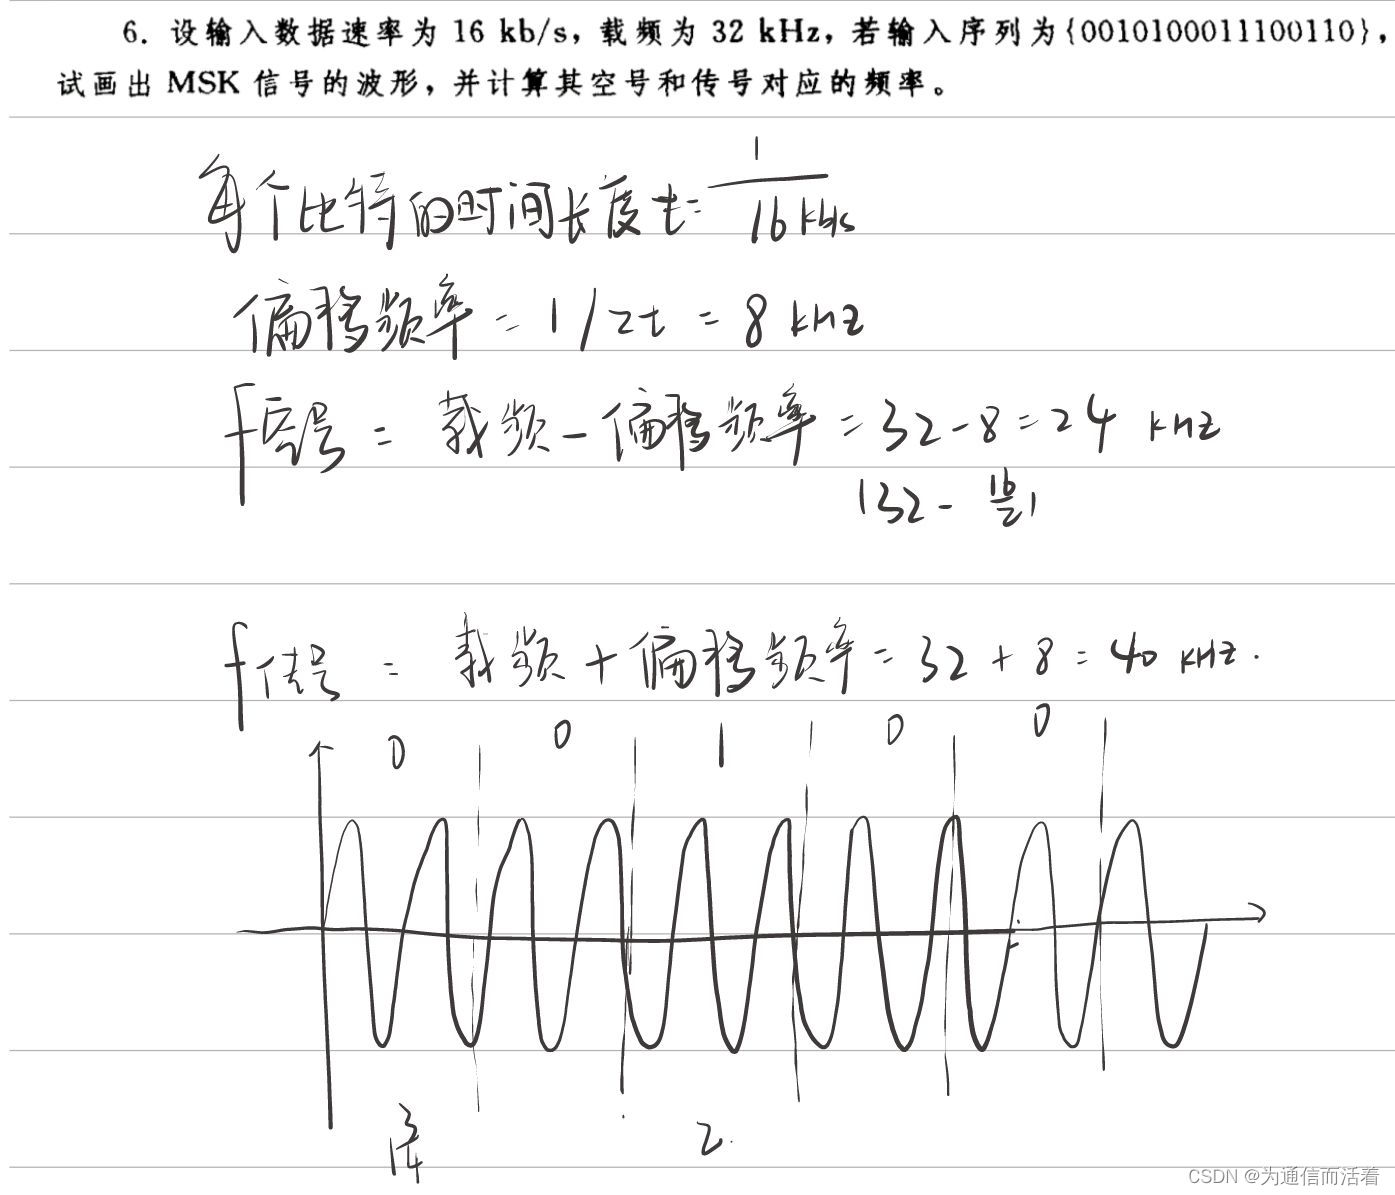 6. 设输入数据速率为 16 kb/s，载频为 32 kHz，若输入序列为{0010100011100110}，
试画出 MSK 信号的波形，并计算其空号和传号对应的频率。
每个比特的时间长度 t = 1/16 kb/s
偏移频率 = 1/2t = 8 kHz
f空号 = 载频 - 偏移频率 = 32-8=24 kHz
(32 - 16/2)
f传号 = 载频 + 偏移频率 = 32+8=40 kHz.
0 0 1 0 0
1 3/4 2.
CSDN @为通信而活着